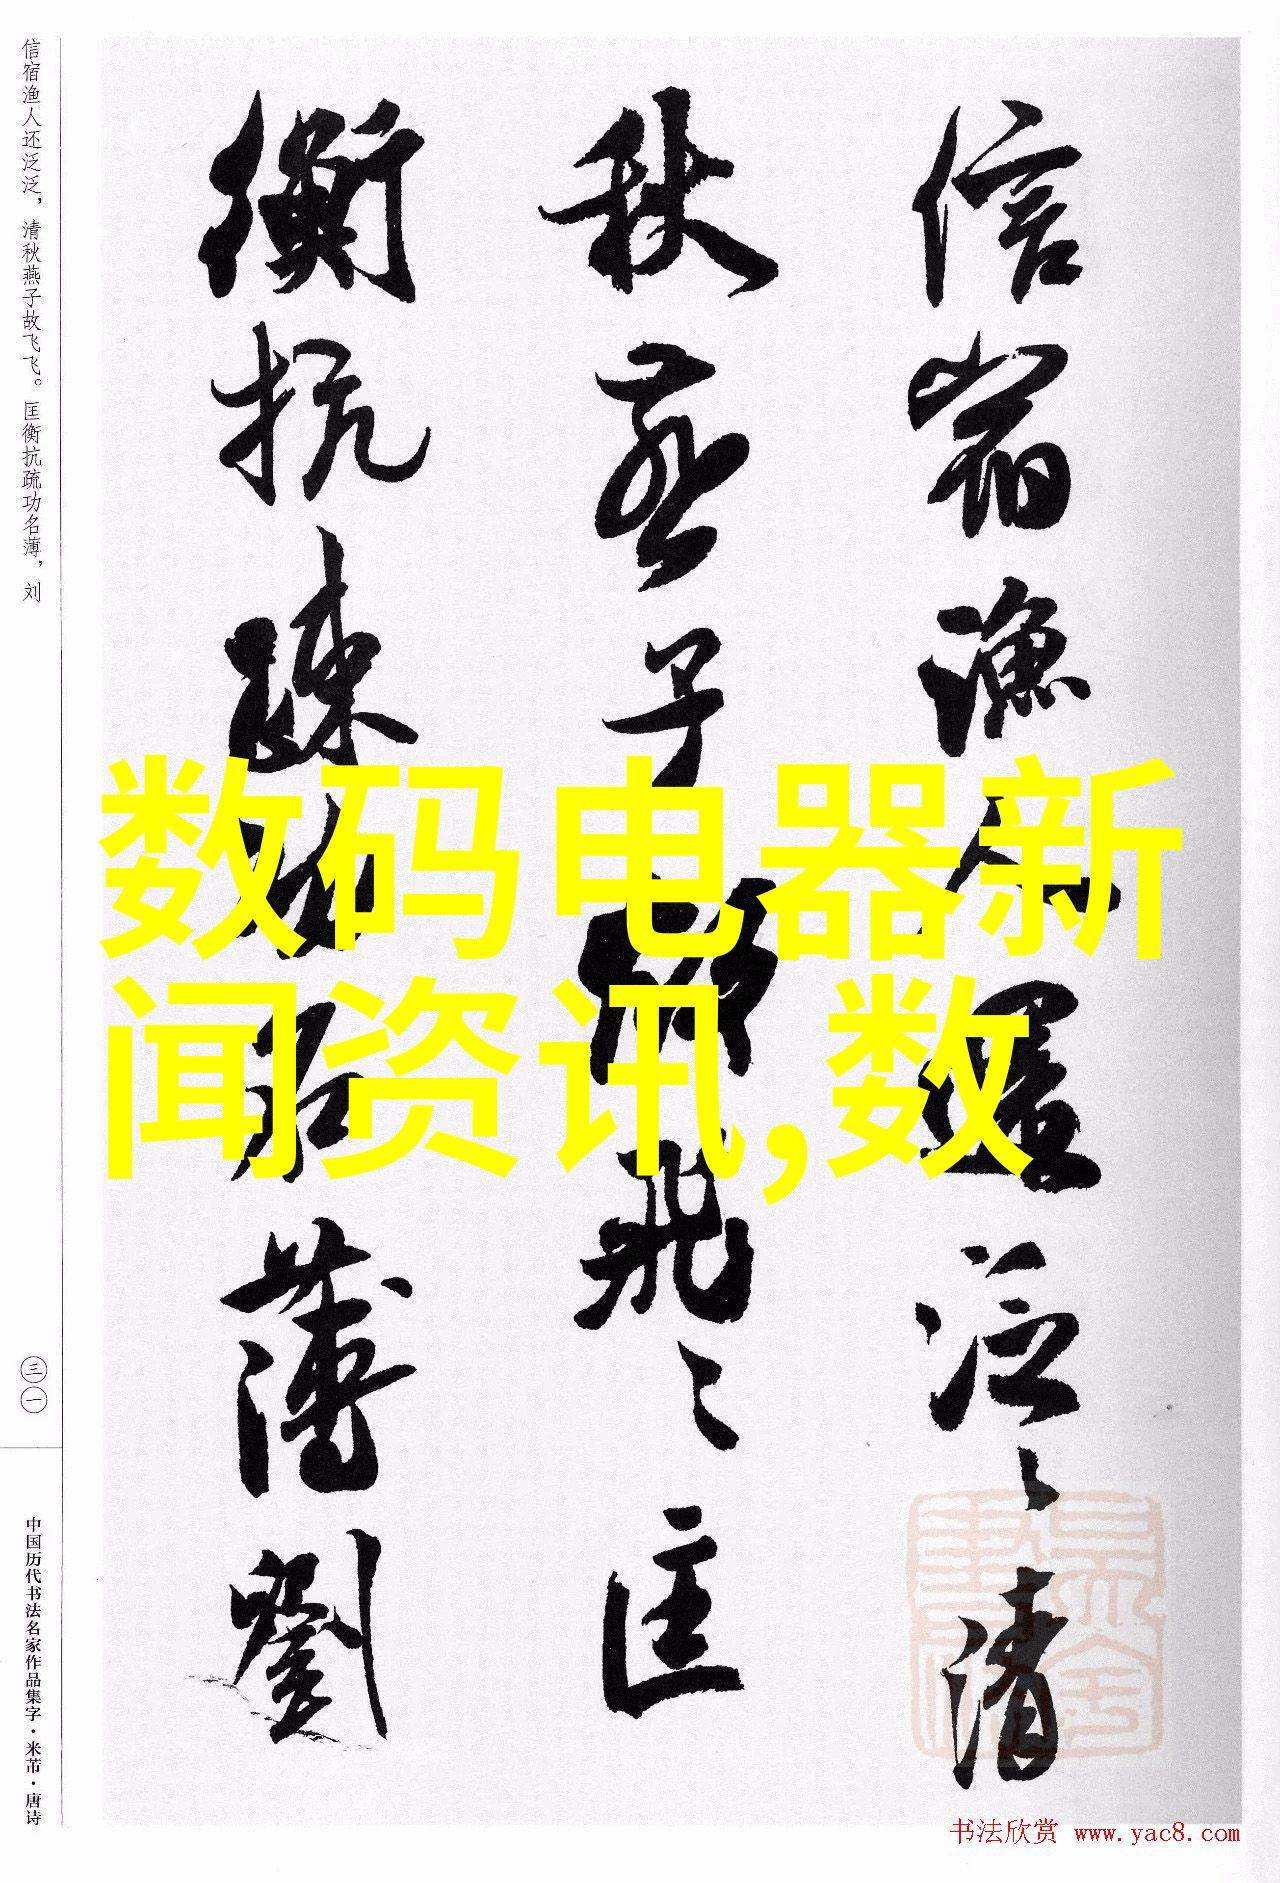 信宿渔人还泛泛，清秋燕子故飞飞。匡衡抗疏功名薄，刘
信宿漁人還泛〻清
秋燕子故飛〻匡
衡抗疏功名薄劉
数码电器新
闻资讯,数
三一
中国历代书法名家作品集字·米芾·唐诗
书法欣赏 www.yac8.com